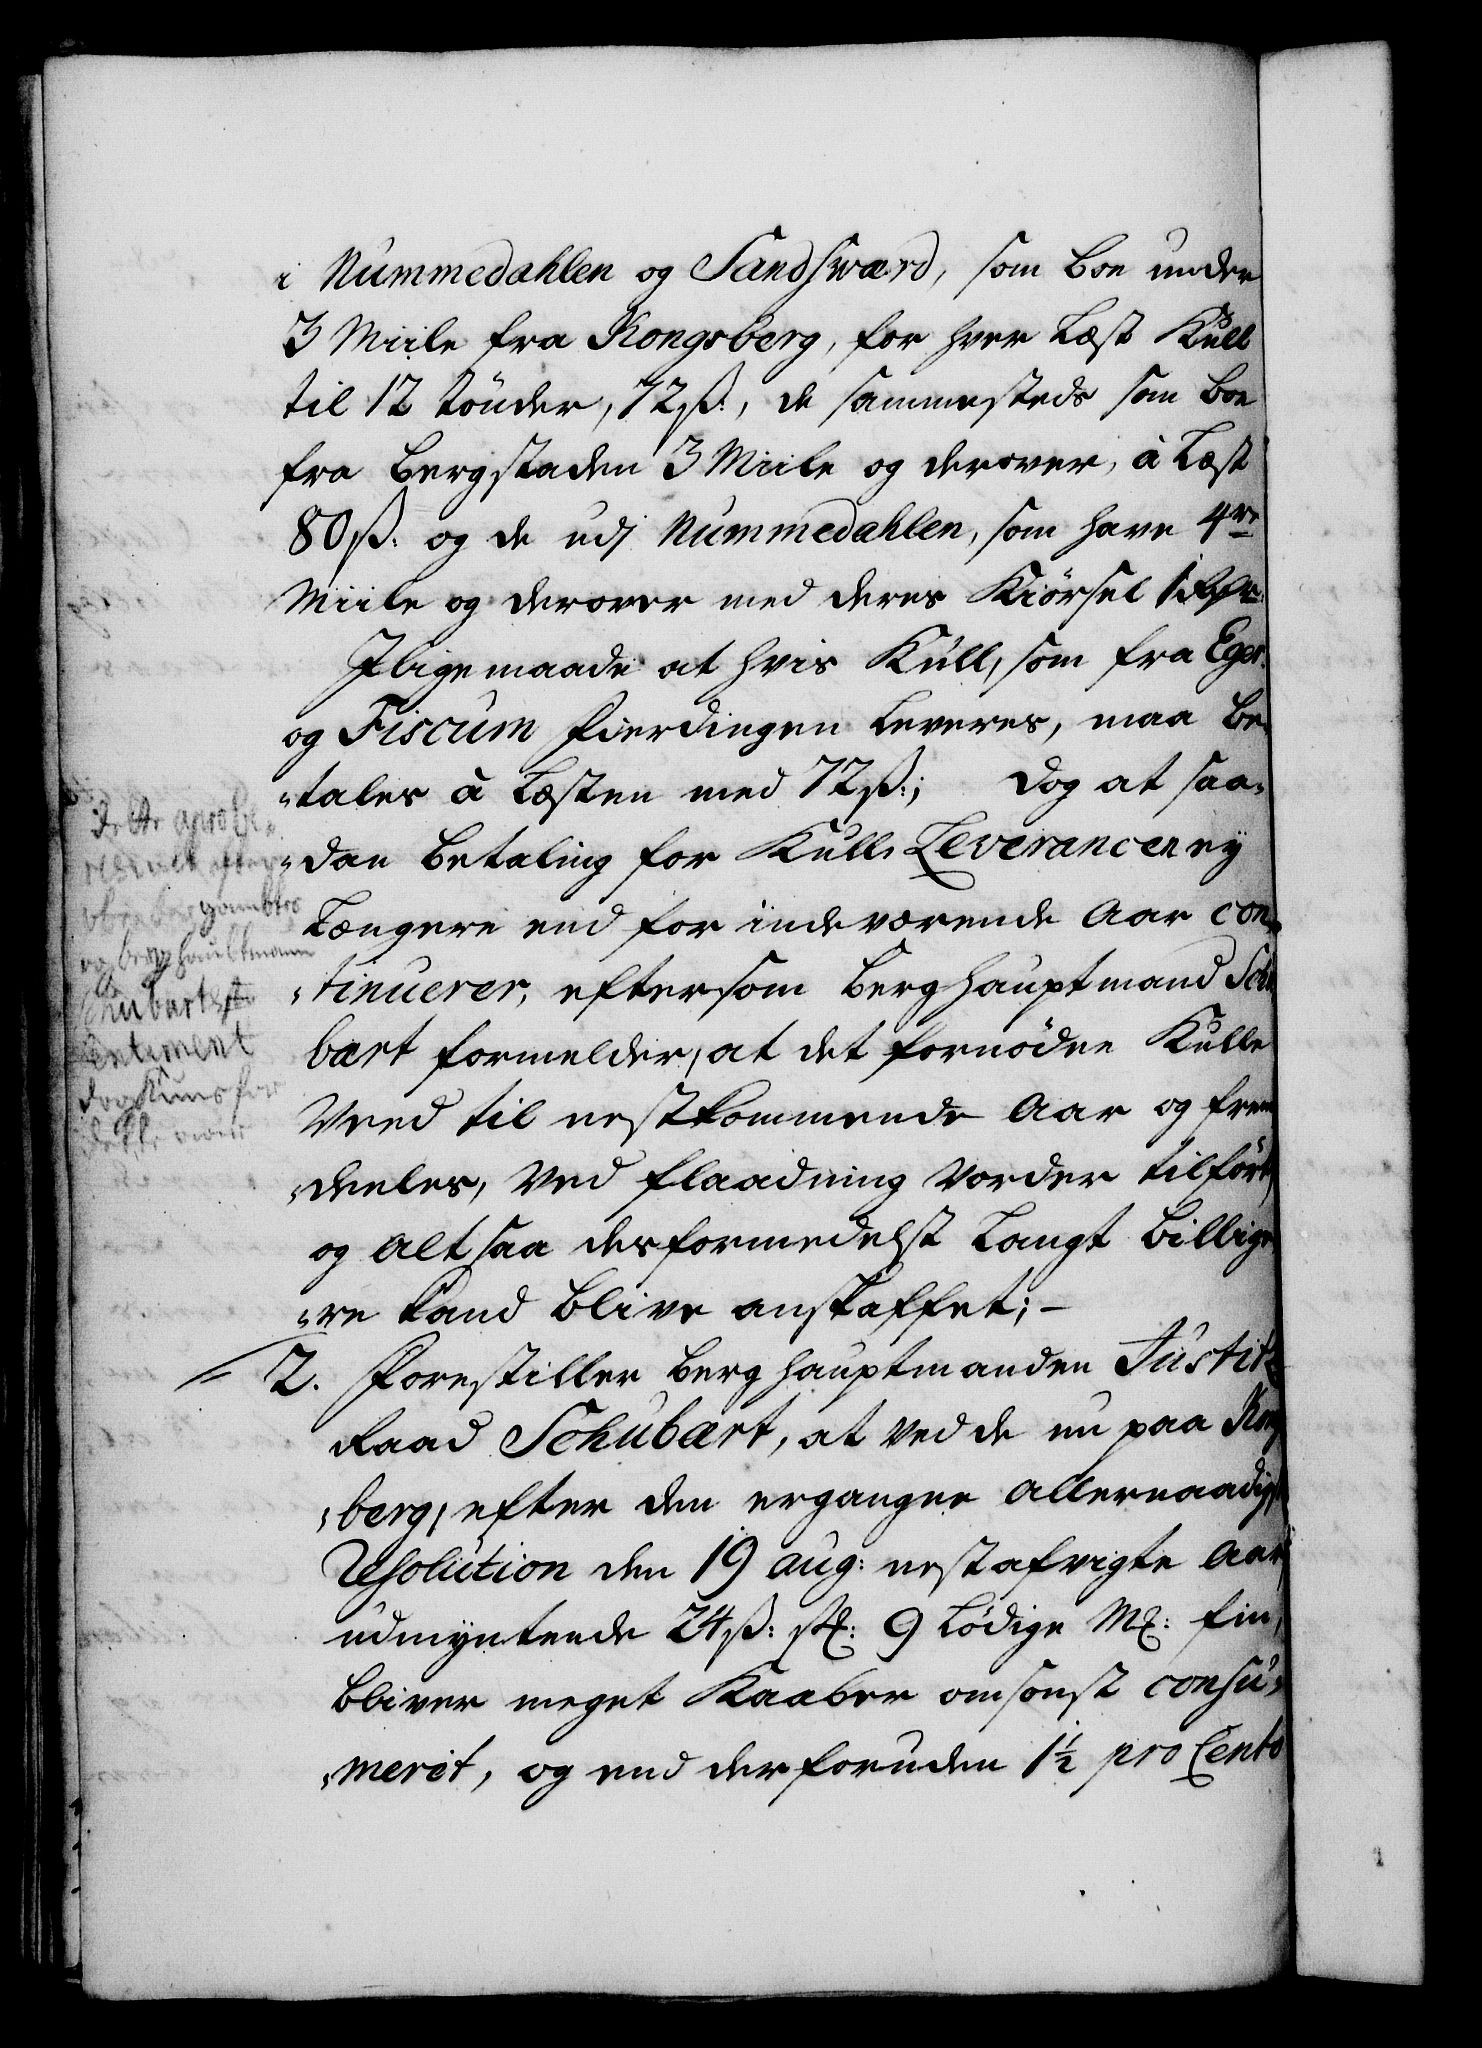 i Nummedahlen og Sandsværd, som boe under
3 Miile fra Kongsberg, for hver Læst Kull
til 12 tönder, 72 ß:, de sammesteds som boe
fra Bergstaden 3 Miile og derover, à Læst
80 ß: og de udj Nummedahlen, som have 4re
Miile og derover med deres Kiörsel 1 Rdlr:
Iligemaade at hvis Kull, som fra Eger
og Fiscum fierdingen leveres, maa be-
-tales à Læsten med 72 ß:; dog at saa-
-dan betaling for Kull Leverancen ey
Længere end for indeværende Aar con-
-tinuerer, eftersom Berghauptmand Schu
bært formelder, at det fornödne Kulle
Veed til nestkommende Aar og frem
-deeles, ved flaadning vorder tilfört,
og altsaa desformedelst Langt billige
-re kand blive anskaffet; -
2. Forestiller Berghauptmanden Justitz
Raad Schubært, at ved de nu paa Kong
-berg, efter den ergangne allernaadigst
Resolution den 19 aug: nestafvigte Aar,
udmyntende 24 ß: st: 9 Lödige M: fin,
bliver meget Kaaber omsonst consu-
-merit, og end derforuden 1½ pro Cento
Dette aprobe-
og berghaubtmann
Schubarts
sentiment
dog Kuns for
dette aar